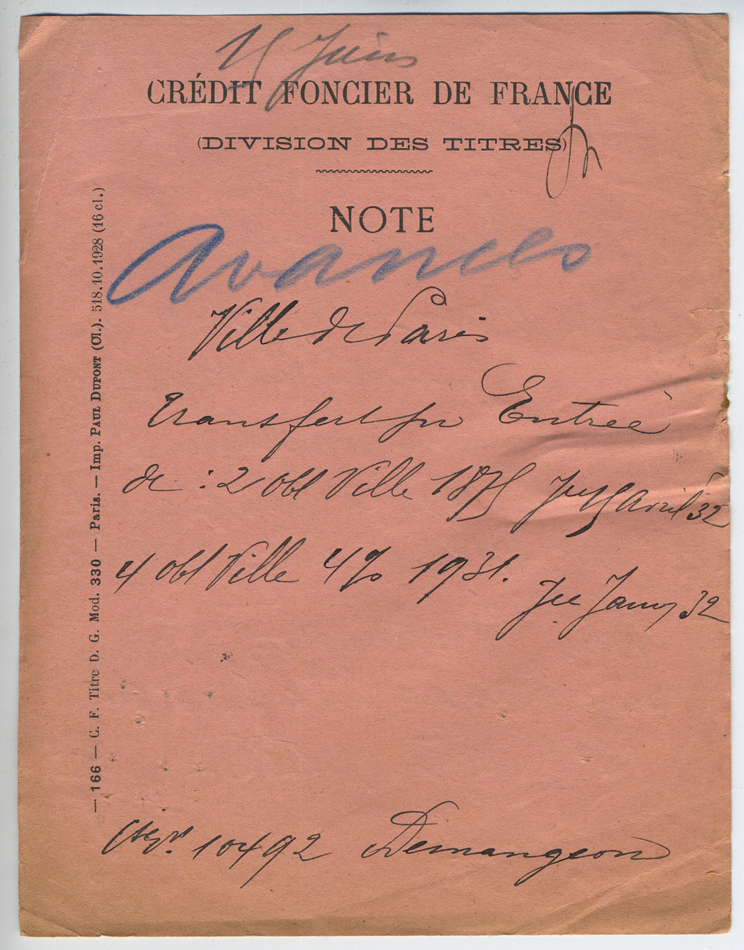 15 Juin
CRÉDIT FONCIER DE FRANCE
(DIVISION DES TITRES)
NOTE
Avances
Ville de Paris
transfert pr Entrée
de : 2 obl Ville 1875 Jce 15 avril 32
4 obl Ville 4% 1931. Jce Janv 32
10492 Demangeon
— 166 — C. F. Titre D. G. Mod. 330 — Paris. — Imp. PAUL DUPONT (Cl.). 518.10.1928 (16 cl.)